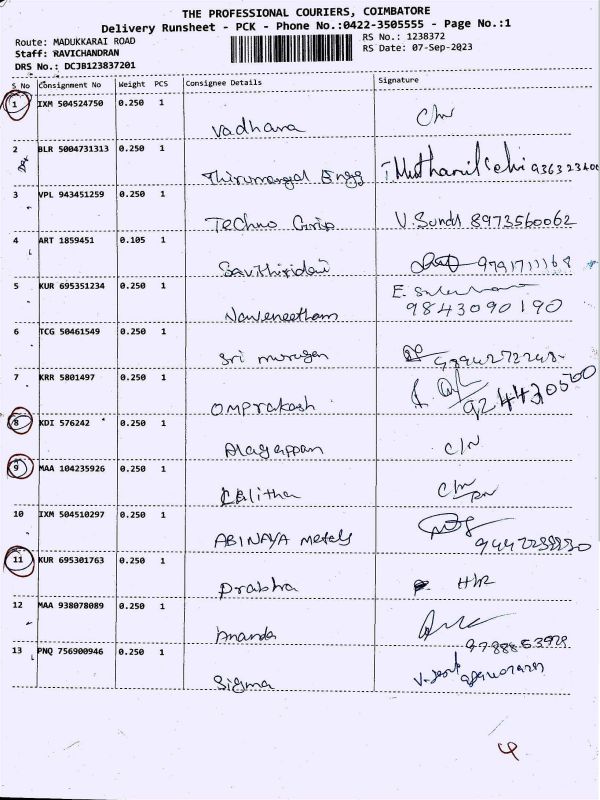 THE PROFESSIONAL COURIERS, COIMBATORE
Delivery Runsheet - PCK - Phone No.:0422-3505555 - Page No.:1
Route: MADUKKARAI ROAD
RS No.: 1238372
Staff: RAVICHANDRAN
RS Date: 07-Sep-2023
DRS No.: DCJB123837201
S No Consignment No Weight PCS Consignee Details Signature
1 IXM 504524750 0.250 1
Vadhana
2 BLR 5004731313 0.250 1
Thirumangal Engg
3 VPL 943451259 0.250 1
Techno Grip V. Sundh 8973560062
4 ART 1859451 0.105 1
Savithiridevi 9791711168
5 KUR 695351234 0.250 1
Navaneetham 9843090190
6 TCG 50461549 0.250 1
Sri murugan
7 KRR 5801497 0.250 1
OMPrakash
8 KDI 576242 0.250 1
Alagappan C/N
9 MAA 104235926 0.250 1
Lalitha
10 IXM 504510297 0.250 1
ABINAYA metals
11 KUR 695301763 0.250 1
Prabha
12 MAA 938078089 0.250 1
Ananda
13 PNQ 756900946 0.250 1
Sigma